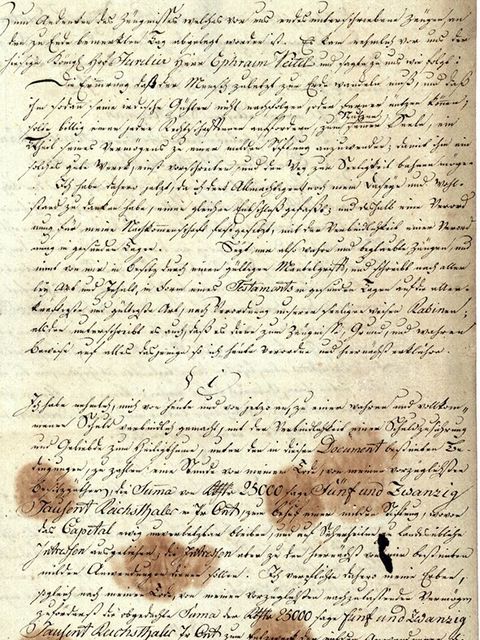 Zum Andenken des Zeugnisses welches vor uns endes unterschriebene Zeugen an
den zu Ende bemerkten Tag abgelegt worden ist. Es kam nehmlich vor uns der
hiesige Königl. Hof Jurelier Herr Ephraim Veitel und sagte zu uns wie folgt:
Die Erinnerung daß der Mensch zuletzt zur Erde wandeln muß, und daß
ihm sodann seine irdische Güther nicht nachfolgen oder ferner nutzen können;
solte billig einen jeden Rechtschaffenen anfordern, zum Nutzen seiner Seele, ein
Theil seines Vermögens zu einer milden Stiftung anzuwenden; damit ihm ein
solches gute Werk, einst vorschreiten und den Weg zur Seeligkeit bahnen möge.
Ich habe dahero jetzt, da ich dem Allmächtigen noch mein Daseyn und Wohl-
stand zu danken habe, einen gleichen Entschluß gefaßt; und deshalb eine Verord-
nung für meine Nachkommenschaft festgesetzt, mit der Verbindlichkeit einer Verord-
nung in gesunden Tagen. Seyd mir also wahre und beglaubte Zeugen, und
nimt von mir in Besitz durch einen gültigen Mantelgriff, und schreibt nach
Art und Inhalt, in Form eines Testaments in gesunden Tagen auf die aller-
kräftigste und gültigste Art, nach Verordnung unserer seeligen weisen Rabinen;
alsdan unterschreibt es auch daß es diene zum Zeugniß, Grund, und wahren
Beweise auf alles dasjenige so ich heute verordne und hiernächst erkläre.
§ 1
Ich habe nehmlich, mich von heute und von jetzo an, zu einer wahren und vollkom-
menen Schuld verbindlich gemacht, mit der Verbindlichkeit einer
und Gelübde zum Heiligthum, unter den in diesem Document bestimten Be-
dingungen, zu zahlen eine Stunde vor meinem Tode, von meinen vorzüglichsten
Besitzgüthern, die Suma von Rthlr 25000 sage Fünf und Zwanzig
Tausent Reichsthaler in Cort, zu einer milden Stiftung, wovon
das Capital ewig unverbrüchlich bleiben, und auf Landesübliche
Intressen ausgeliehen; die Intressen aber zu den hiernächst von mir bestimten
milden Anwendungen dienen sollen. Ich verpflichte dahero meine Erben,
sogleich nach meinem Tode von meinem vorzüglichsten nachzulassenden Vermögen
zuförderst die obgedachte Suma der Rthlr 25000 sage Fünf und Zwanzig
Tausent Reichsthaler in Cort